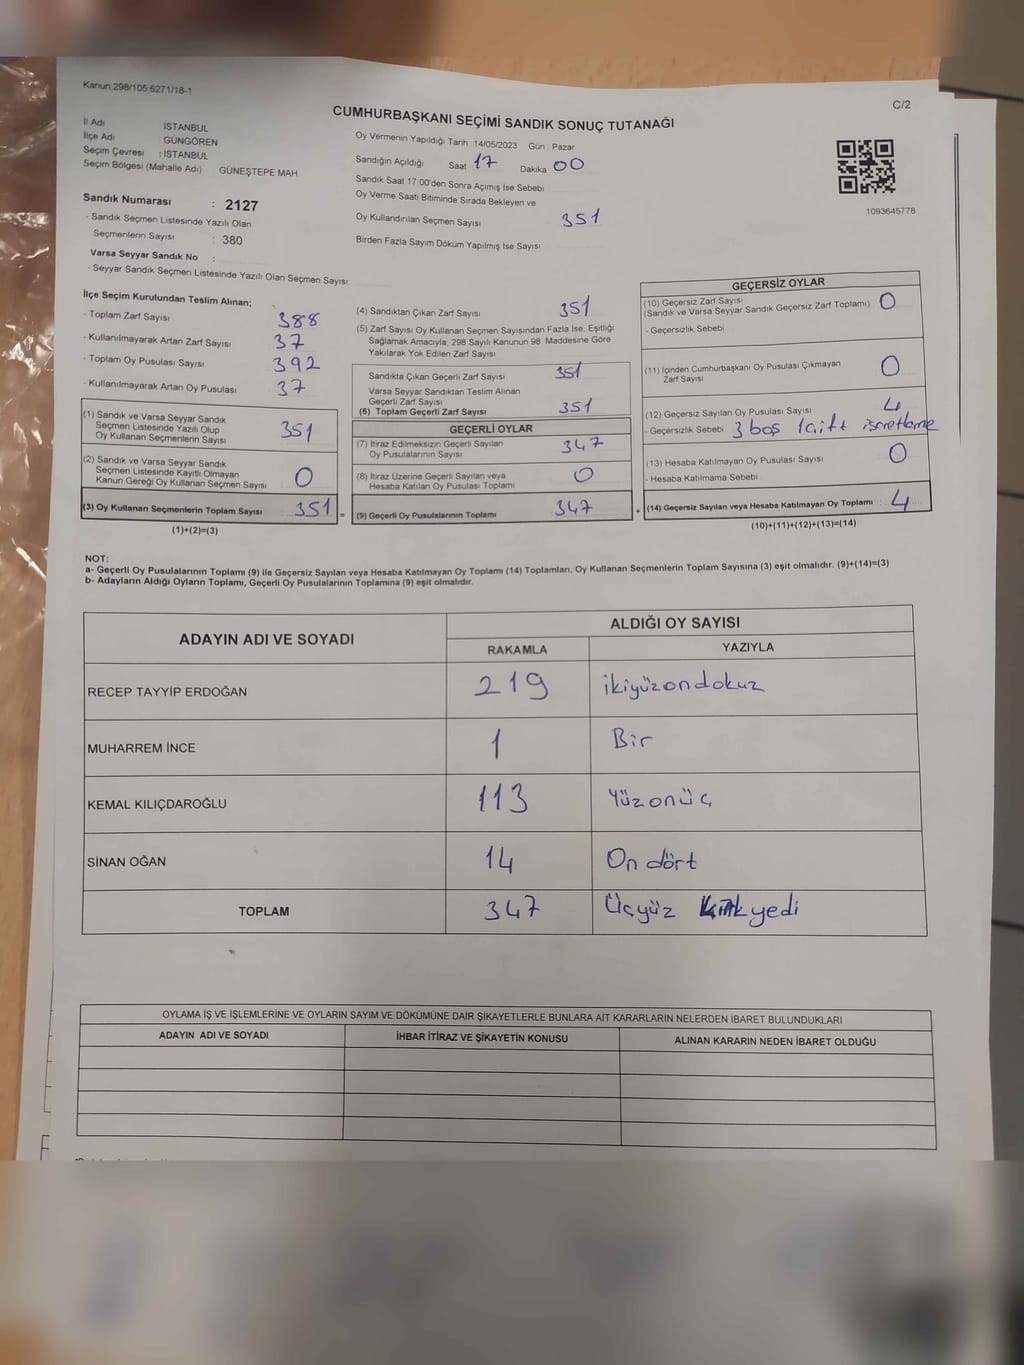 Kanun:298/105,6271/18-1
C/2
CUMHURBAŞKANI SEÇİMİ SANDIK SONUÇ TUTANAĞI
İl Adı İSTANBUL
İlçe Adı GÜNGÖREN
Seçim Çevresi : İSTANBUL
Seçim Bölgesi (Mahalle Adı) GÜNEŞTEPE MAH.
Sandık Numarası : 2127
- Sandık Seçmen Listesinde Yazılı Olan
Seçmenlerin Sayısı : 380
Varsa Seyyar Sandık No :
- Seyyar Sandık Seçmen Listesinde Yazılı Olan Seçmen Sayısı:
Oy Vermenin Yapıldığı Tarih 14/05/2023 Gün : Pazar
Sandığın Açıldığı Saat 17 Dakika 00
Sandık Saat 17:00'den Sonra Açımış İse Sebebi
Oy Verme Saati Bitiminde Sırada Bekleyen ve
Oy Kullandırılan Seçmen Sayısı 351
Birden Fazla Sayım Döküm Yapılmış İse Sayısı
1093645778
İlçe Seçim Kurulundan Teslim Alınan;
- Toplam Zarf Sayısı 388
- Kullanılmayarak Artan Zarf Sayısı 37
- Toplam Oy Pusulası Sayısı 392
- Kullanılmayarak Artan Oy Pusulası 37
(1) Sandık ve Varsa Seyyar Sandık
Seçmen Listesinde Yazılı Olup
Oy Kullanan Seçmenlerin Sayısı 351
(2) Sandık ve Varsa Seyyar Sandık
Seçmen Listesinde Kayıtlı Olmayan
Kanun Gereği Oy Kullanan Seçmen Sayısı 0
(3) Oy Kullanan Seçmenlerin Toplam Sayısı 351 =
(1)+(2)=(3)
(4) Sandıktan Çıkan Zarf Sayısı 351
(5) Zarf Sayısı Oy Kullanan Seçmen Sayısından Fazla İse, Eşitliği
Sağlamak Amacıyla; 298 Sayılı Kanunun 98. Maddesine Göre
Yakılarak Yok Edilen Zarf Sayısı
Sandıkta Çıkan Geçerli Zarf Sayısı 351
Varsa Seyyar Sandıktan Teslim Alınan
Geçerli Zarf Sayısı
(6) Toplam Geçerli Zarf Sayısı 351
GEÇERLİ OYLAR
(7) İtiraz Edilmeksizin Geçerli Sayılan
Oy Pusulalarının Sayısı 347
(8) İtiraz Üzerine Geçerli Sayılan veya
Hesaba Katılan Oy Pusulası Toplamı 0
(9) Geçerli Oy Pusulalarının Toplamı 347 +
GEÇERSİZ OYLAR
(10) Geçersiz Zarf Sayısı
(Sandık ve Varsa Seyyar Sandık Geçersiz Zarf Toplamı) 0
- Geçersizlik Sebebi
(11) İçinden Cumhurbaşkanı Oy Pusulası Çıkmayan
Zarf Sayısı 0
(12) Geçersiz Sayılan Oy Pusulası Sayısı 4
- Geçersizlik Sebebi 3 boş 1 çift işaretleme
(13) Hesaba Katılmayan Oy Pusulası Sayısı 0
- Hesaba Katılmama Sebebi
(14) Geçersiz Sayılan veya Hesaba Katılmayan Oy Toplamı : 4
(10)+(11)+(12)+(13)=(14)
NOT:
a- Geçerli Oy Pusulalarının Toplamı (9) ile Geçersiz Sayılan veya Hesaba Katılmayan Oy Toplamı (14) Toplamları, Oy Kullanan Seçmenlerin Toplam Sayısına (3) eşit olmalıdır. (9)+(14)=(3)
b- Adayların Aldığı Oyların Toplamı, Geçerli Oy Pusulalarının Toplamına (9) eşit olmalıdır.
ADAYIN ADI VE SOYADI
ALDIĞI OY SAYISI
RAKAMLA YAZIYLA
RECEP TAYYİP ERDOĞAN 219 ikiyüzondokuz
MUHARREM İNCE 1 Bir
KEMAL KILIÇDAROĞLU 113 Yüzonüç
SİNAN OĞAN 14 On dört
TOPLAM 347 Üçyüz kırkyedi
OYLAMA İŞ VE İŞLEMLERİNE VE OYLARIN SAYIM VE DÖKÜMÜNE DAİR ŞİKAYETLERLE BUNLARA AİT KARARLARIN NELERDEN İBARET BULUNDUKLARI
ADAYIN ADI VE SOYADI İHBAR İTİRAZ VE ŞİKAYETİN KONUSU ALINAN KARARIN NEDEN İBARET OLDUĞU